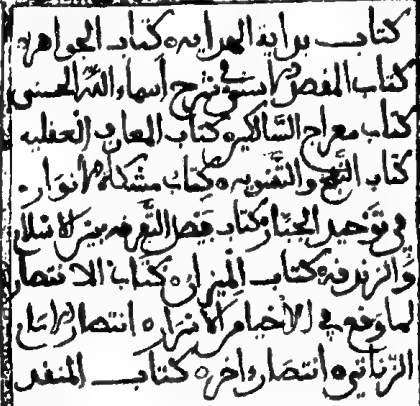 كتاب بداية الهداية ه كتاب الجواهر ه
كتاب المقصد الاسنى في شرح اسماء الله الحسنى
كتاب معراج السالكين ه كتاب المعارف العقلية
كتاب النفخ والتسوية ه كتاب مشكاة الانوار
في توحيد الجبار ه كتاب فيصل التفرقة بين الاسلام
والزندقة ه كتاب الميزان ه كتاب الانتصار
لما وقع في الاحياء من الاسرار ه انتصار
انتصار واخر ه كتاب المنقد